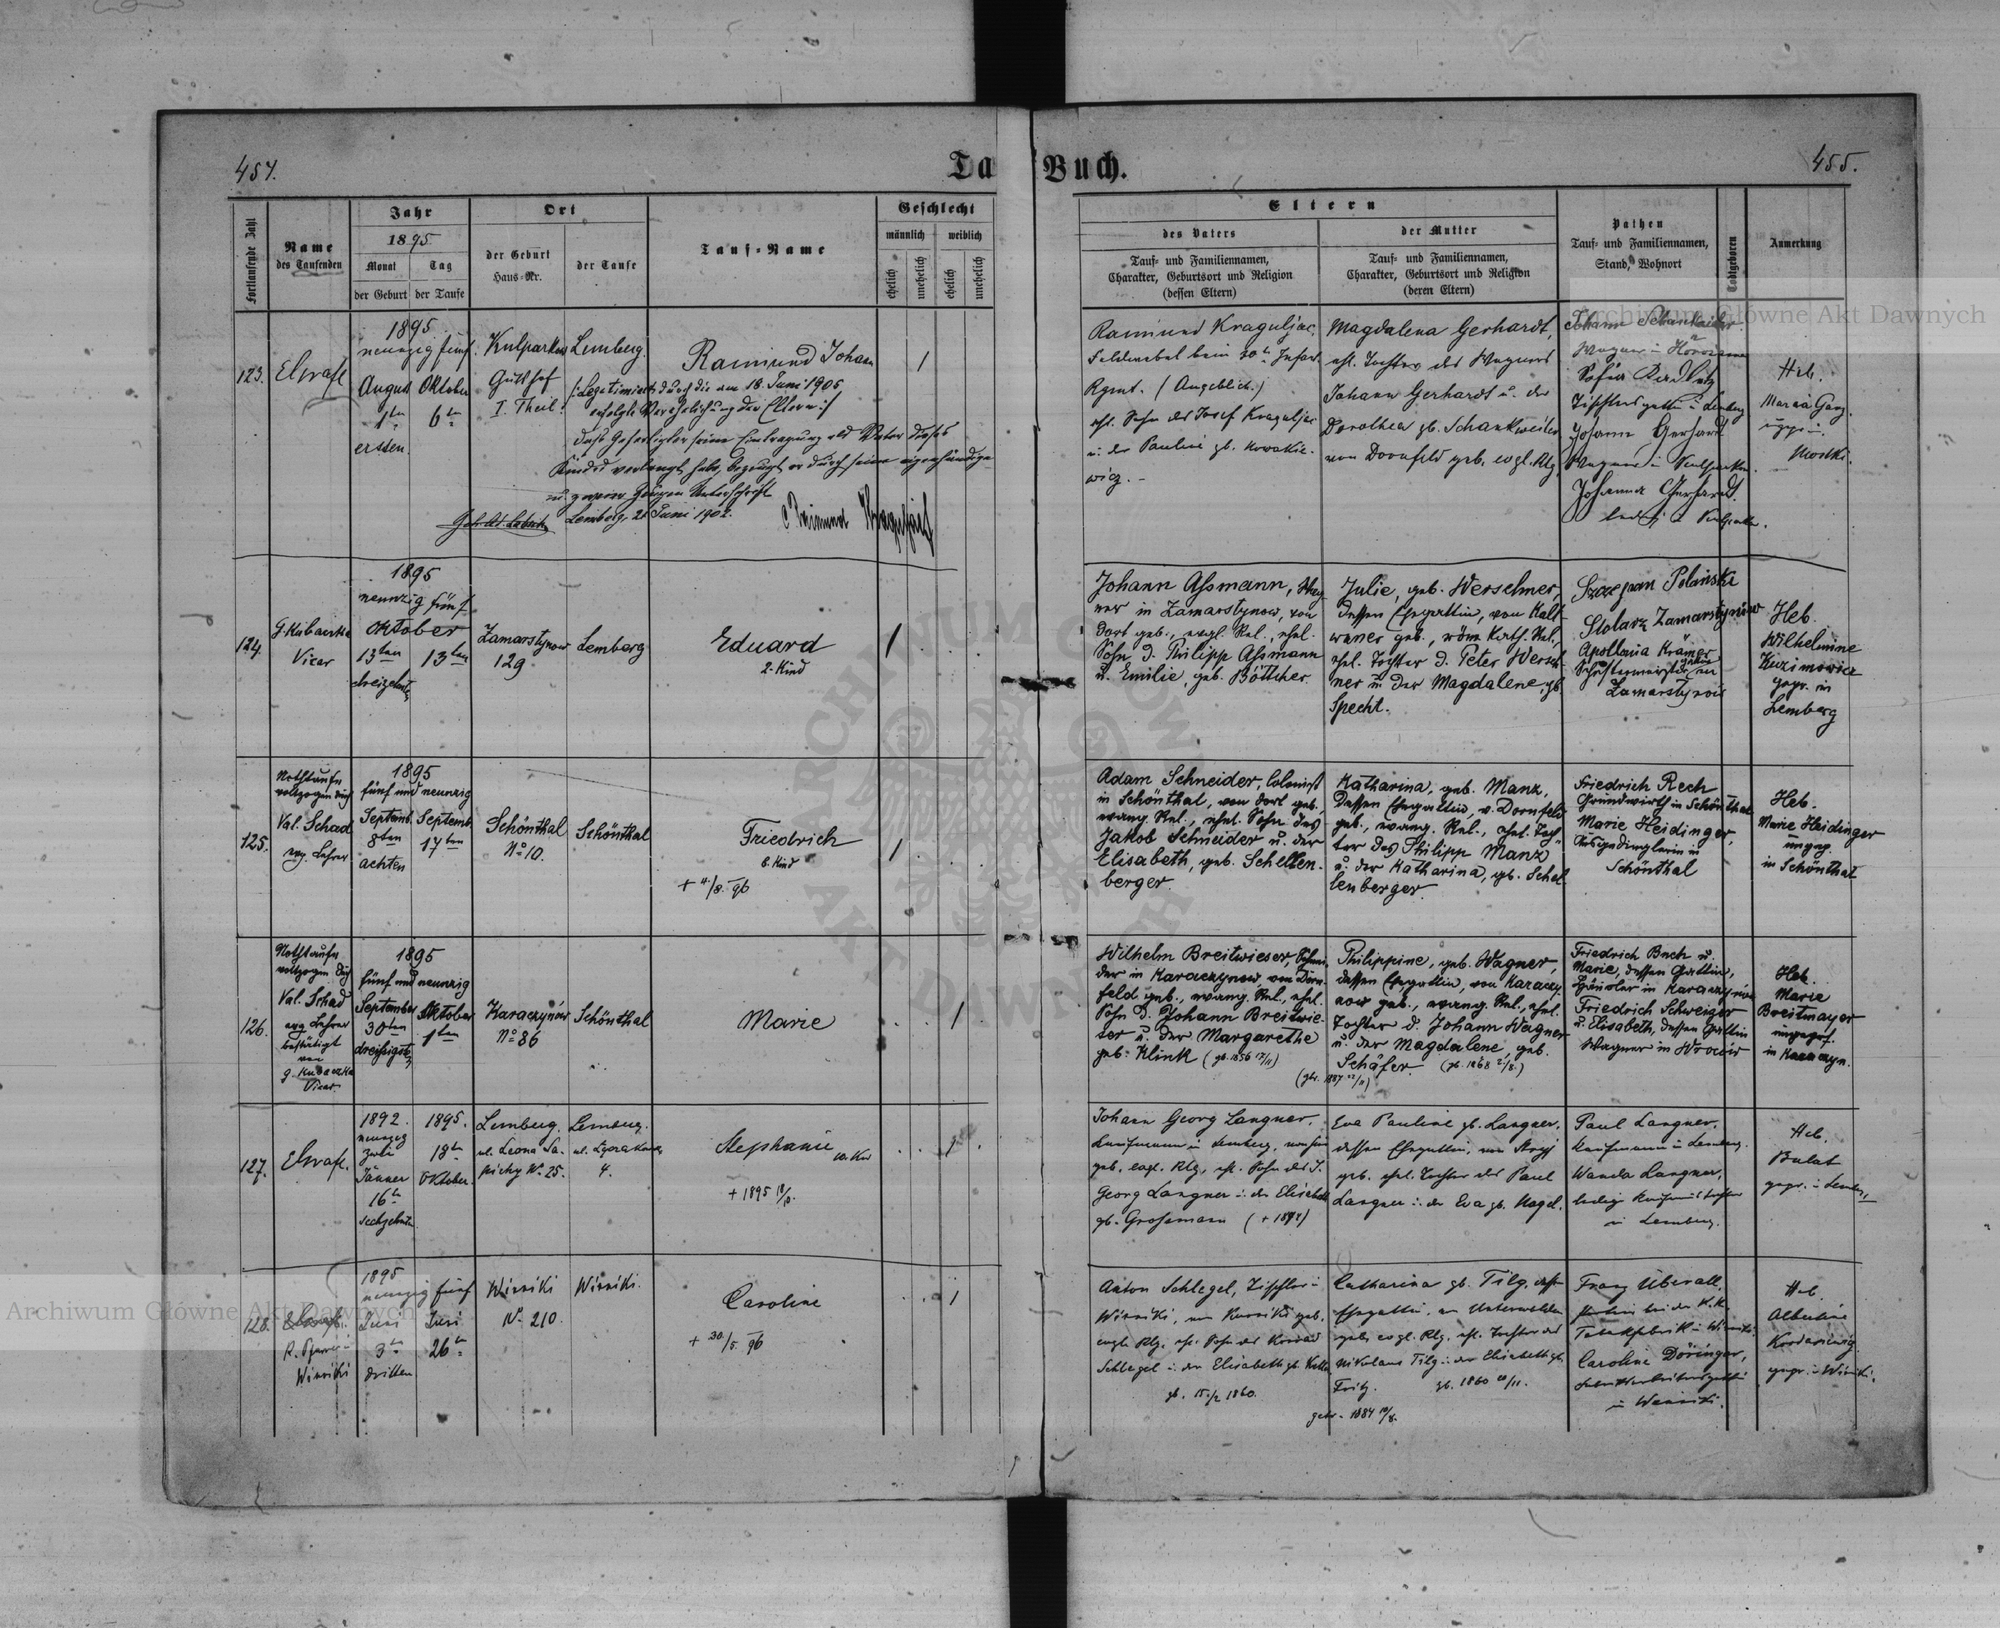 454.
Tauf-Buch.
455.
Fortlaufende Zahl
Name
des Taufenden
Jahr
1895.
Monat
Tag
der Geburt
der Taufe
Ort
der Geburt
Haus-Nr.
der Taufe
Tauf-Name
Geschlecht
männlich
weiblich
ehelich
unehelich
ehelich
unehelich
Eltern
des Vaters
Tauf- und Familiennamen,
Charakter, Geburtsort und Religion
(dessen Eltern)
der Mutter
Tauf- und Familiennamen,
Charakter, Geburtsort und Religion
(deren Eltern)
Pathen
Tauf- und Familiennamen,
Stand, Wohnort
Todtgeboren
Anmerkung
123.
1895
neunzig fünf
August
1ten
ersten
Oktober
6ten
Kulparkow
Guthof
I. Theil.
Lemberg.
Raimund Johann
/:Legitimiert durch die am 18. Juni 1905
erfolgte Verehelichung der Eltern:/
Daß Gefertigter seine Eintragung als Vater dieses
Kindes verlangt habe, bezeugt er durch seine eigenhändige
Lemberg, 21 Juni 1902.
Raimund Kraguljac
Feldwebel beim 30ten Infant.
Rgmt. (Angeblich.)
ehl. Sohn des Josef Kraguljac
u. der Pauline gb. Nowakie-
wicz. -
Magdalena Gerhardt,
ehl. Tochter des Wagners
Johann Gerhardt u. der
Dorothea gb. Schankweiler
von Dornfeld geb. evgl. Rlg.
Johann Schankweiler
Sofia
Johann Gerhard
Johanna Gerhardt
Heb.
Maria
124.
G. Kubaczka
Vicar
1895
neunzig fünf
Oktober
13ten
dreizehnten
13ten
Zamarstynow
129
Lemberg
Eduard
2. Kind
1
Johann Aßmann, Wag-
ner in Zamarstynow, von
dort geb., evgl. Rel., ehel.
Sohn d. Philipp Aßmann
u. Emilie, geb. Böttcher.
Julie, geb. Werschner,
dessen Ehegattin, von Kalt-
wasser geb., röm. kath. Rel.,
ehel. Tochter d. Peter Wersch-
ner u. der Magdalene, gb.
Specht.
Szczepan Polański
Stolarz Zamarstynów
Apollonia Krämer
Schustermeistersgattin
Zamarstynow
Heb.
Wilhelmine
Kuzimowicz
gepr. in
Lemberg
125.
Nothtaufe
vollzogen durch
Val. Schad
evg. Lehrer
1895
fünf und neunzig
Septemb.
8ten
achten
Septemb.
17ten
Schönthal
No 10.
Schönthal
Friedrich
6. Kind
+ 4/8. 96
1
Adam Schneider, Colonist
in Schönthal, von dort geb.,
evang. Rel., ehel. Sohn des
Jakob Schneider u. der
Elisabeth, geb. Schellen-
berger.
Katharina, geb. Manz,
dessen Ehegattin, v. Dornfeld
geb., evang. Rel., ehel. Toch-
ter des Philipp Manz
u. der Katharina, gb. Schel-
lenberger.
Friedrich Rech
Grundwirth in Schönthal
Marie Heidinger,
Ausgedinglerin in
Schönthal
Heb.
Marie Heidinger
ungepr.
in Schönthal
126.
Nothtaufe
vollzogen durch
Val. Schad
evg. Lehrer
bestätigt
von
G. Kubaczka
Vicar
1895
fünf und neunzig
September
30ten
dreißigsten
Oktober
1ten
Karaczynów
No 86
Schönthal
Marie
1
Wilhelm Breitwieser, Schnei-
der in Karaczynow, von Dorn-
feld geb., evang. Rel., ehel.
Sohn d. Johann Breitwie-
ser u. der Margarethe
geb. Klink (gb. 1856 17/11)
Philippine, geb. Wagner,
dessen Ehegattin, von Karaczy-
now geb., evang. Rel., ehel.
Tochter d. Johann Wagner
u. der Magdalene, geb.
Schäfer. (gb. 1868 2/8.)
(getr. 1887 22/11)
Friedrich Bach u.
Marie, dessen Gattin,
Häusler in Karaczynów
Friedrich Schweiger
u. Elisabeth, dessen Gattin
Wagner in Wrocow
Heb.
Marie
Breitmayer
ungepr.
in Karaczyn.
127.
1892.
neunzig
zwei
Jänner
16ten
sechzehnten
1895.
18ten
Oktober.
Lemberg.
ul. Leona Sa-
piehy No. 25.
Lemberg.
ul. Lyczakowska
4.
Stephanie
+ 1895
1
Johann Georg Langner,
Kaufmann in Lemberg, von hier
geb., evgl. Rlg., ehl. Sohn des J.
Georg Langner u. der Elisabeth
gb. Großmann
Eva Pauline gb. Langner,
dessen Ehegattin, von Stryj
geb. ehel. Tochter des Paul
Langner u. der Eva gb. Nagel.
Paul Langner,
Kaufmann in Lemberg.
Wanda Langner,
ledige Kaufmannstochter
in Lemberg.
Heb.
Bulat
gepr. in Lemberg
128.
R. Pfarrer in
Winniki
1895
neunzig fünf
Juni
3ten
dritten
Juni
26ten
Winniki
No. 210.
Winniki.
Caroline
+ 30./5. 96
1
Anton Schlegel, Tischler in
Winniki, von Winniki geb.
evgl. Rlg., ehl. Sohn des Konrad
Schlegel u. der Elisabeth gb.
gb. 15/2 1860.
Catharina gb. Tilg, dessen
Ehegattin, von Unterwalden
geb., evgl. Rlg., ehl. Tochter des
Nikolaus Tilg u. der Elisabeth gb.
Fritz. gb. 1860 20/11.
getr. 1884 10/8.
Franz Überall,
Tabakfabrik in Winniki.
Caroline Döringer,
in Winniki.
Heb.
Albertine
gepr. in Winniki.
Archiwum Główne Akt Dawnych
Archiwum Główne Akt Dawnych